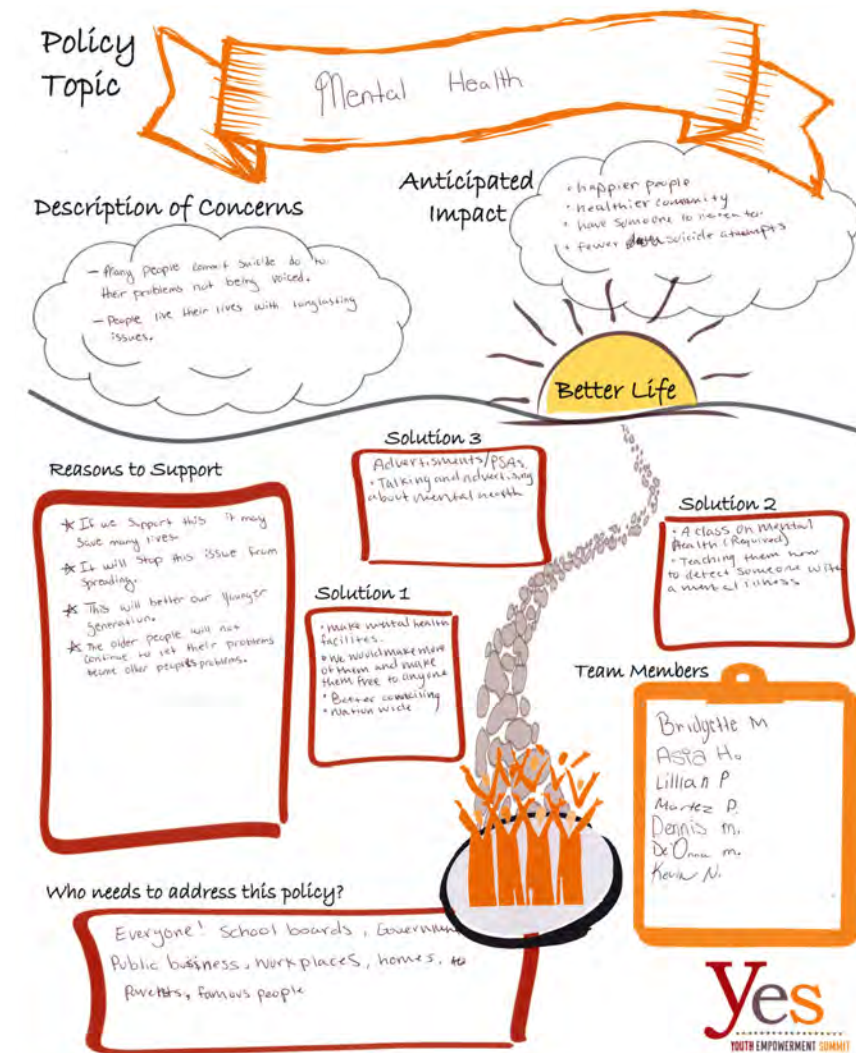 Policy
Topic
Mental Health
Description of Concerns
- Many people commit suicide do to
their problems not being voiced.
- People live their lives with longlasting
issues.
Anticipated
Impact
• happier people
• healthier community
• have someone to listen to
• fewer suicide attempts
Better Life
Reasons to Support
☆ If we support this it may
save many lives.
☆ It will stop this issue from
spreading.
☆ This will better our younger
generation.
☆ The older people will not
continue to let their problems
become other people's problems.
Solution 3
Advertisments/PSAs
• Talking and advertising
about mental health
Solution 1
• make mental health
facilites.
• We would make more
of them and make
them free to anyone
• Better
• Nation wide
Solution 2
• A class on Mental
Health (Required)
• Teaching them how
to detect someone with
a mental illness
Team Members
Bridgette M
Asia H.
Lillian P
Martez D.
Dennis m.
De'Onna m.
Kevin N.
Who needs to address this policy?
Everyone! School boards,
Public business, workplaces, homes,
Parents, famous people
yes
YOUTH EMPOWERMENT SUMMIT